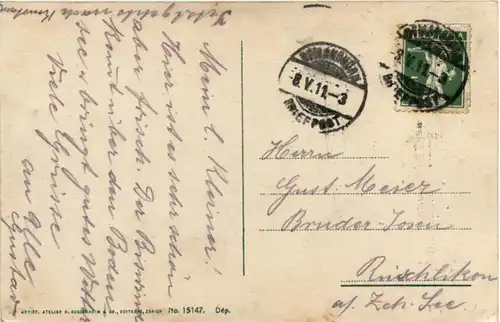 Jetzt gehts nach Konstanz
Mein l. Kleiner!
Hier ist es sehr schön
aber frisch. Der Biswind
kommt über den Boden
see & bringt gutes Wetter
Viele Grüsse
an Alle
Gustav
8.V.11.-3
BRIEFPOST
8.V.11.-3
BRIEFPOST
Herrn
Gust. Meier
Bruder-
Rüschlikon
a/. Zch. See
ARTIST. ATELIER H. GUGGENHEIM & CO., EDITEURS, ZÜRICH No. 15147. Dép.